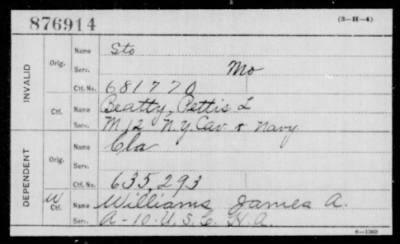 876914
(3-H-4)
INVALID
Orig.
Name Sto
Serv. Mo
Ctf. No. 681770
Ctf.
Name Beatty, Pettis L
Serv. M 12 N.Y. Cav & Navy
DEPENDENT
Orig.
Name Cla
Serv.
Ctf. No. 635,293
W Ctf.
Name Williams James A.
Serv. A-10-U.S.C.H.A.
6-1302